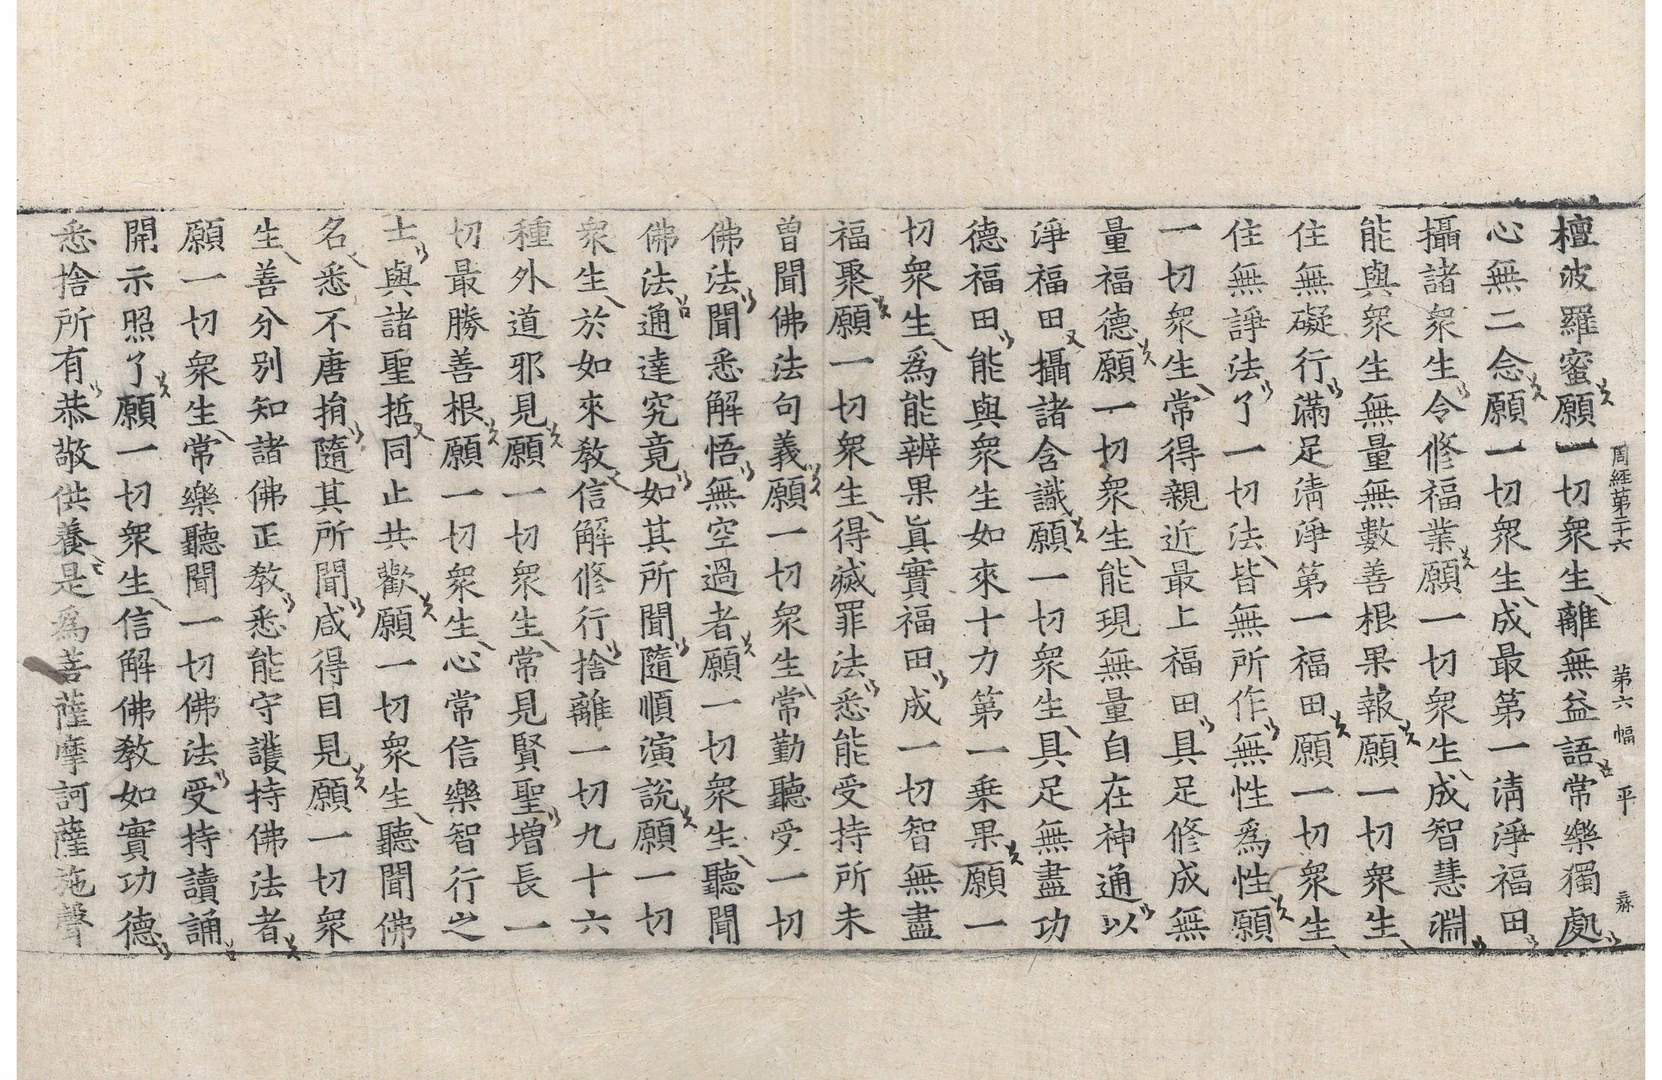 周經第二十六 第六幅 平
檀波羅蜜願一切衆生離無益語常樂獨處
心無二念願一切衆生成最第一淸淨福田
攝諸衆生令修福業願一切衆生成智慧淵
能與衆生無量無數善根果報願一切衆生
住無礙行滿足淸淨第一福田願一切衆生
住無諍法了一切法皆無所作無性爲性願
一切衆生常得親近最上福田具足修成無
量福德願一切衆生能現無量自在神通以
淨福田攝諸含識願一切衆生具足無盡功
德福田能與衆生如來十力第一乗果願一
切衆生爲能辨果眞實福田成一切智無盡
福聚願一切衆生得滅罪法悉能受持所未
曽聞佛法句義願一切衆生常勤聽受一切
佛法聞悉解悟無空過者願一切衆生聽聞
佛法通達究竟如其所聞隨順演說願一切
衆生於如來敎信解修行捨離一切九十六
種外道邪見願一切衆生常見賢聖增長一
切最勝善根願一切衆生心常信樂智行之
士與諸聖哲同止共歡願一切衆生聽聞佛
名悉不唐捐隨其所聞咸得目見願一切衆
生善分別知諸佛正敎悉能守護持佛法者
願一切衆生常樂聽聞一切佛法受持讀誦
開示照了願一切衆生信解佛敎如實功德
悉捨所有恭敬供養是爲菩薩摩訶薩施聲